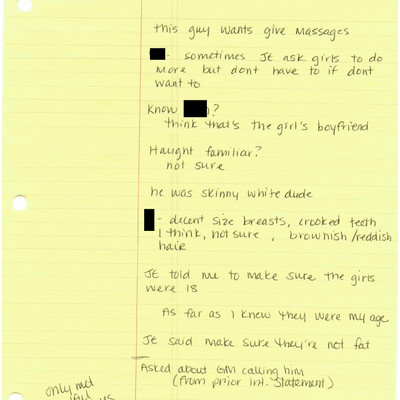 this guy wants give massages
- sometimes JE ask girls to do
more but dont have to if dont
want to
Know ?
think that's the girl's boyfriend
Haught familiar?
not sure
he was skinny white dude
- decent size breasts, crooked teeth
I think, not sure, brownish/reddish
hair
JE told me to make sure the girls
were 18
As far as I knew they were my age
JE said make sure they're not fat
Asked about GM calling him
(from prior int. statement)
only met